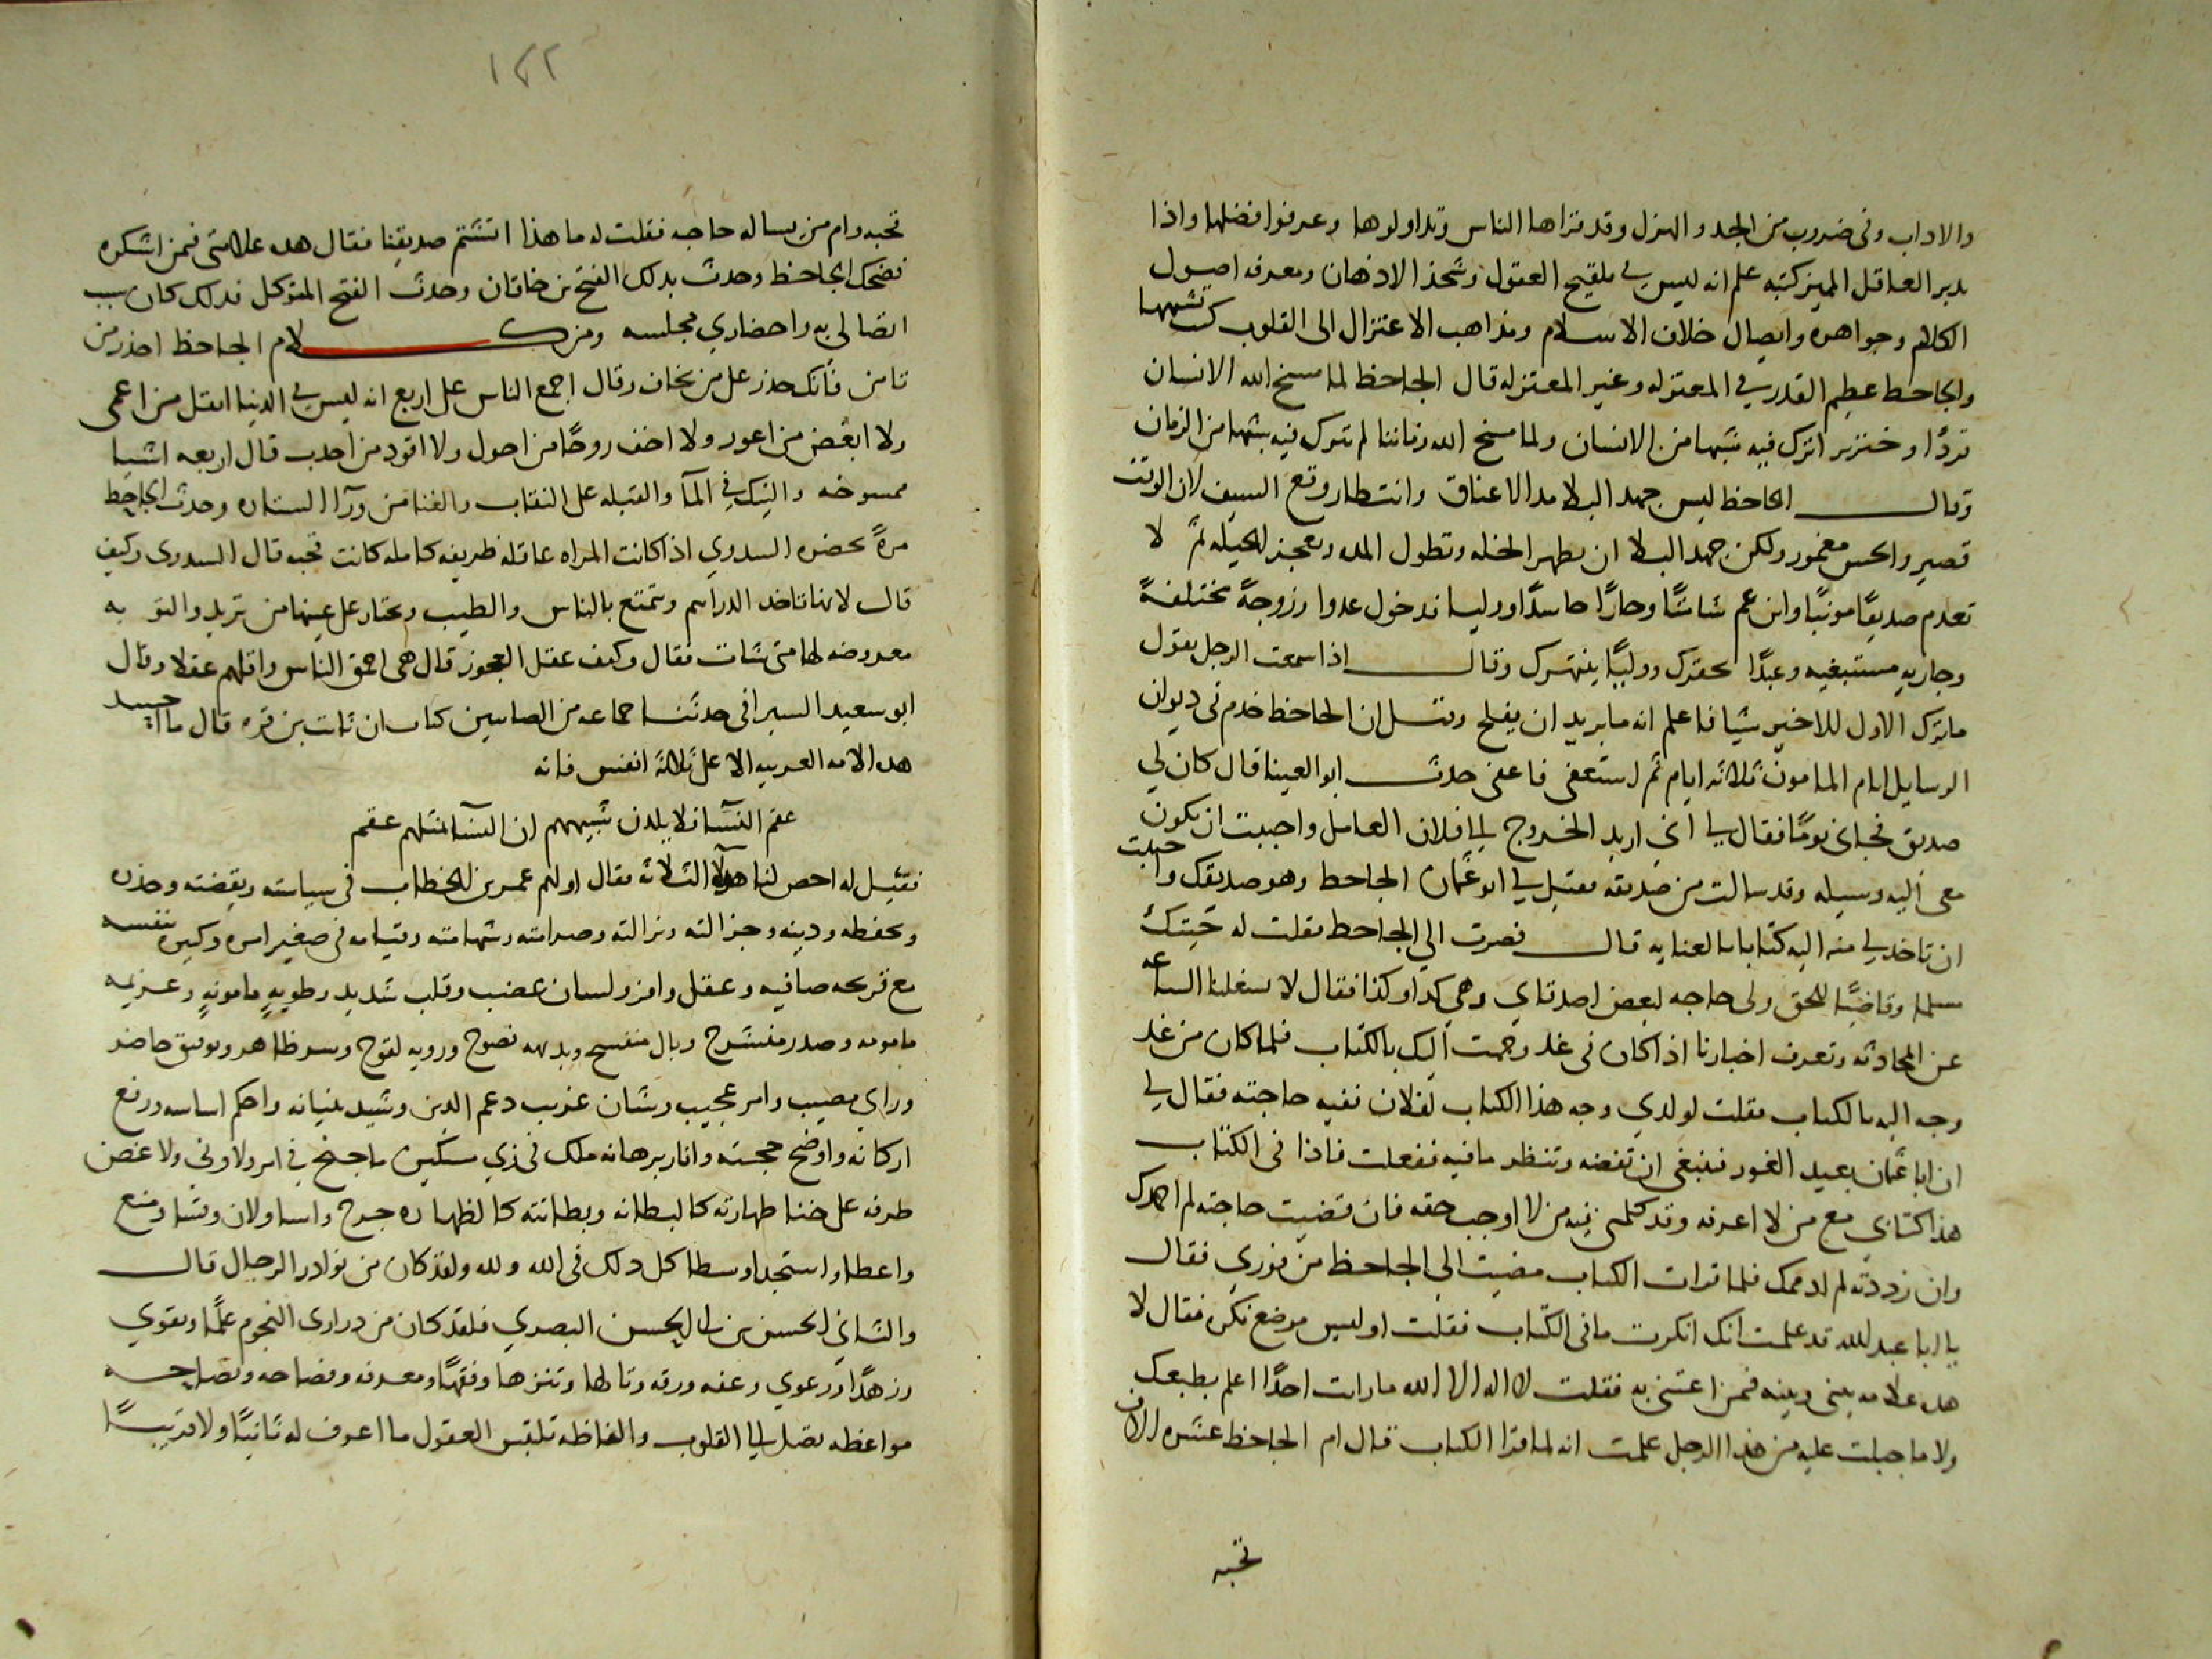 والاداب وفى ضروب من الجد والهزل وقد قراها الناس وتداولوها وعرفوا فضلها واذا
تدبر العاقل المميز كتبه علم انه ليس في تلقيح العقول وشحذ الاذهان ومعرفه اصول
الكلام وجواهره وايصال خلاف الاسلام ومذاهب الاعتزال الى القلوب كتب تشبهها
والجاحط عظيم القدر في المعتزله وغير المعتزله قال الجاحظ لما مسخ الله الانسان
قردًا وخنزير اترك فيه شبها من الانسان ولما مسخ الله زماننا لم يترك فيه شبها من الزمان
وقال الجاحظ ليس جهد البلا مد الاعناق وانتظار وقع السيف لان الوقت
قصير والحس مغمور ولكن جهد البلا ان يظهر الخله وتطول المده وتعجز الحيله ثم لا
تعدم صديقًا مونبًا وابن عم شامتًا وجارًا حاسدًا ووليا قد حول عدوا وزوجةً مختلفةً
وجاريه مستبغيه وعبدًا يحقرك وولدًا ينتهرك وقال اذا سمعت الرجل يقول
ما ترك الاول للاخير شيا فاعلم انه ما يريد ان يفلح وقيل ان الجاحظ خدم فى ديوان
الرسايل ايام المامون ثلاثه ايام ثم استعفى فاعفى حدث ابو العينا قال كان لي
صديق فجاى يومًا فقال لي اني اريد الخروج الي فلان العامل واحببت ان يكون
معى اليه وسيله وقد سالت من صديقه فقيل لي ابو عثمان الجاحط وهو صديقك واحببت
ان تاخد لي منه اليه كتابا بالعنايه قال فصرت الي الجاحظ فقلت له جيتك
مسلما وقاضيًا للحق ولى حاجه لبعض اصدقاي وهي كدا وكذا فقال لا تشغلنا الساعه
عن المحادثه وتعرف اخبارنا اذا كان فى غد وجهت اليك بالكتاب فلما كان من غد
وجه اليه بالكتاب فقلت لولدي وجه هذا الكتاب لفلان ففيه حاجته فقال لي
ان ابا عثمان بعيد الغور فينبغى ان تفضه وتنظر ما فيه ففعلت فاذا فى الكتاب
هذا كتابي مع من لا اعرفه وقد كلمني فيه من لا اوجب حقه فان قضيت حاجته لم احمدك
وان رددته لم اذمك فلما قرات الكتاب مضيت الي الجاحظ من فوري فقال
يا ابا عبدالله قد علمت انك انكرت ما فى الكتاب فقلت او ليس موضع نكره فقال لا
هده علامه بينى وبينه فمن اعتنى به فقلت لا اله الا الله ما رايت احدًا اعلم بطبعك
ولا ما جبلت عليه من هذا الرجل علمت انه لما قرا الكتاب قال ام الجاحظ عشره الاف
تحبه
١٢٢
تحبه وام من يساله حاجه فقلت له ما هذا اتشتم صديقنا فقال هده علامتى فيمن اشكره
فضحك الجاحظ وحدث بدلك الفتح بن خاقان وحدث الفتح المتوكل فدلك كان سبب
اتصالى به واحضاري مجلسه ومن كلام الجاحظ احذر من
تامن فانك حذر على من تخاف وقال اجمع الناس على اربع انه ليس في الدنيا اثقل من اعمى
ولا ابغض من اعور ولا اخف روحًا من احول ولا اقود من احدب قال اربعه اشيا
ممسوخه والنيك في المآ والقبله على النقاب والغنا من ورآ الستاره وحدث الجاحظ
مرةً بحضره السدوي اذا كانت المراه عاقله ظريفه كامله كانت قحبه قال السدرى وكيف
قال لانها تاخد الدراهم وتتمتع بالناس والطيب وتختار على عينها من تريد والتوبه
معروضه لها متى شات فقال وكيف عقل العجوز قال هى احمق الناس واقلهم عقلا وقال
ابو سعيد السيرافى حدثنا جماعه من الصابيين كتاب ان ثابت بن قره قال ما احسد
هده الامه العربيه الا على ثلاثة انفس فانه
عقم النسآ فلا يلدن شبيههم ان النسآ بمثلهم عقم
فقيل له احص لنا هولآ الثلاثه فقال اولهم عمر بن الخطاب فى سياسته ويقضته وحذره
وتحفظه ودينه وجزالته وبزالته وصرامته وشهامته وقيامه فى صغير امره وكبيره بنفسه
مع قريحه صافيه وعقل وافر ولسان عضب وقلب شديد وطويةٍ مامونةٍ وعزيمه
مامومه وصدر منشرح وبال منفسح وبديهه نصوح ورويه لقوح وسر ظاهر وتوفيق حاضر
وراي مصيب وامر عجيب وشان غريب دعم الدين وشيد بنيانه واحكم اساسه ورفع
اركانه واوضح حجته وانار برهانه ملك فى زي مسكين ما جنح في امر ولا ونى ولا غض
طرفه على خنا ظهارته كالبطانه وبطانته كالظهاره جرح واسا ولان وقسا ومنع
واعطا واستجدا وسطا كل دلك فى الله ولله ولقد كان من نوادر الرجال قال
والثاني الحسن بن ابي الحسن البصري فلقد كان من درارى النجوم علمًا وتقوي
وزهدًا وورعوي وعفه ورقه وتالها وتنزها وفقهًا ومعرفه وفصاحه ونصاحه
مواعظه تصل الي القلوب والفاظه تلتبس العقول ما اعرف له ثانيًا ولا قريبًا